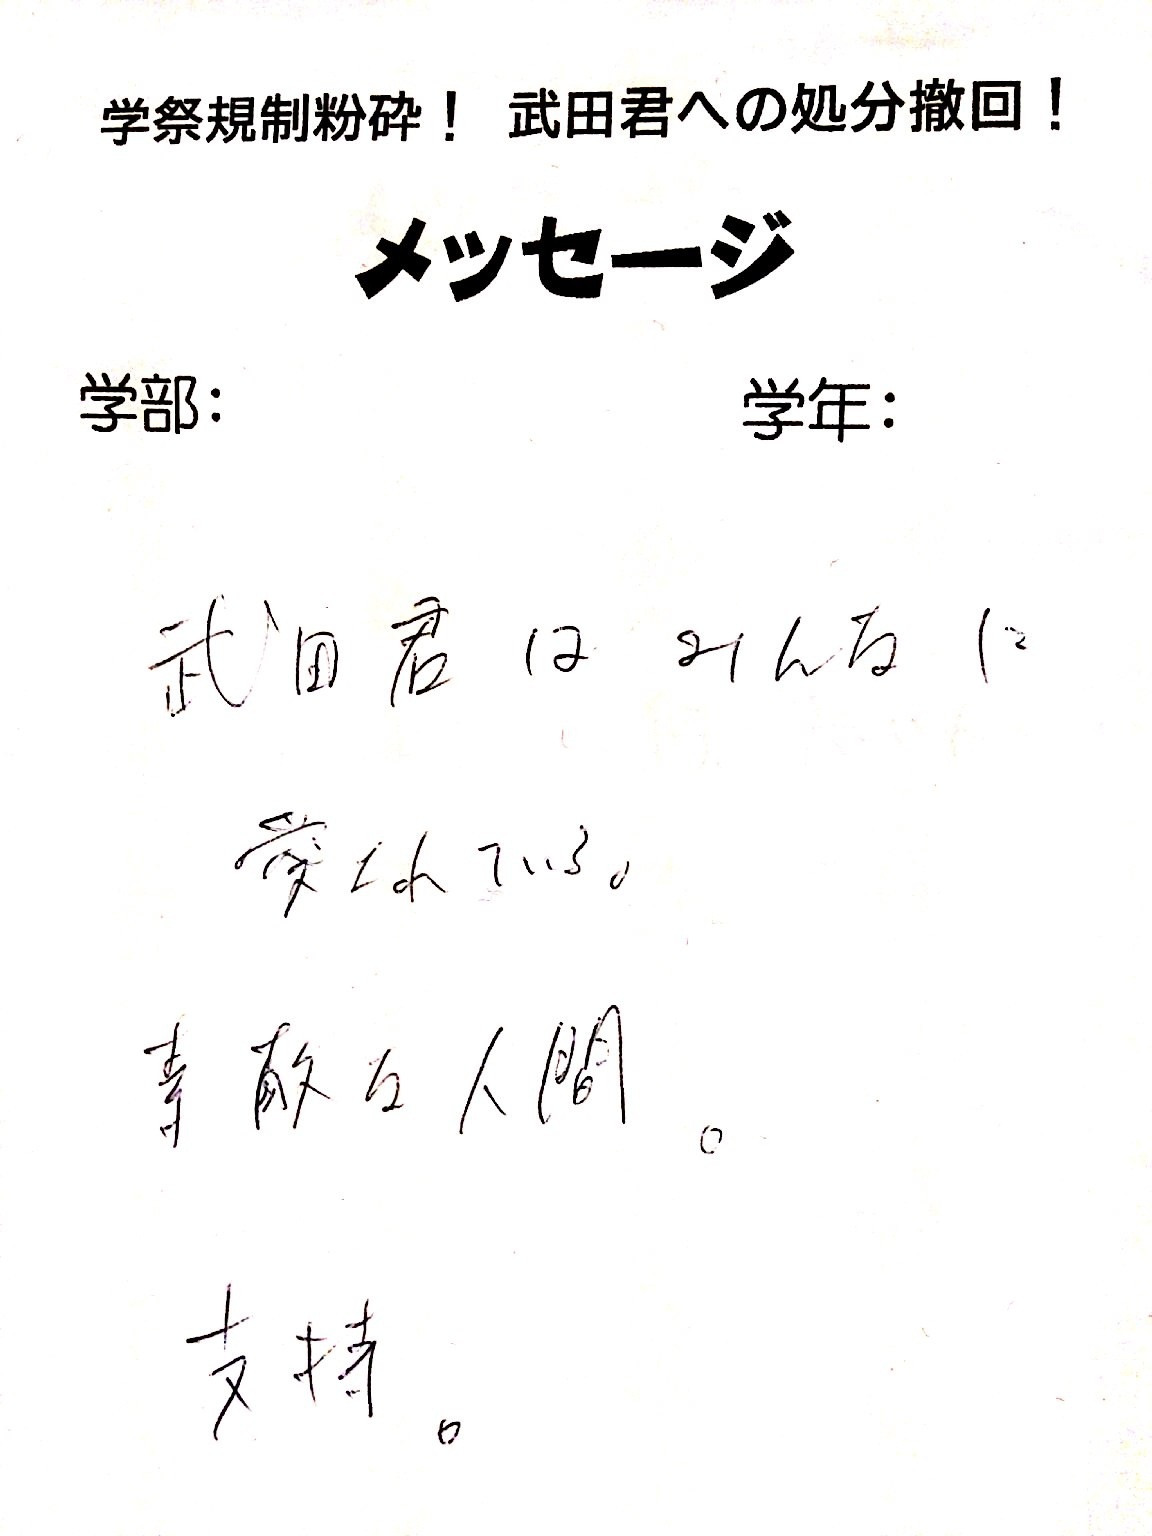 学祭規制粉砕！ 武田君への処分撤回！
メッセージ
学部： 学年：
武田君はみんなに
愛されている。
素敵な人間。
支持。